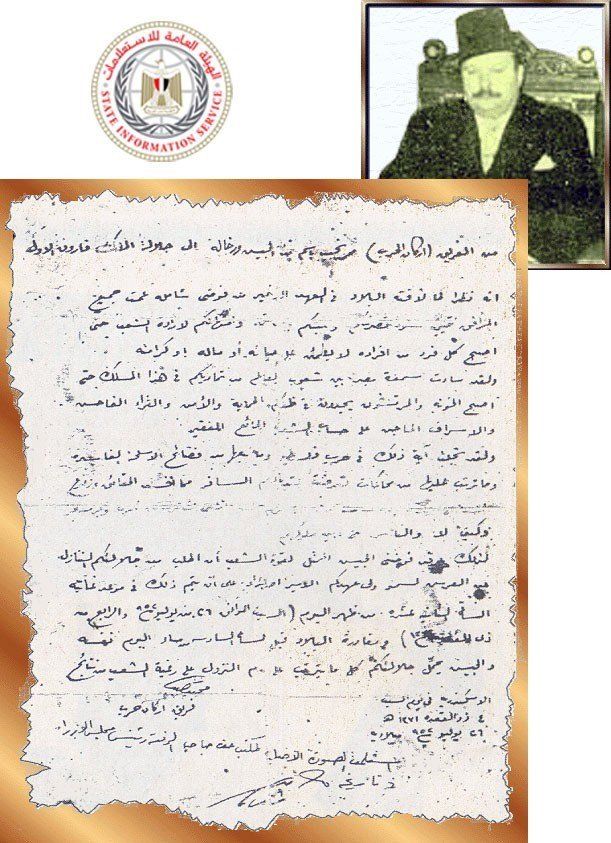 الهيئة العامة للاستعلامات
STATE INFORMATION SERVICE
من الفريق (أركان الحرب) محمد نجيب باسم الجيش ورجاله الى جلالة الملك فاروق الأول
انه نظرا لما لاقته البلاد في العهد الأخير من فوضى شاملة عمت جميع
المرافق نتيجة سوء تصرفكم لارادة الشعب حتى
اصبح كل فرد من افراده لا يطمئن على حياته أو ماله او كرامته
ولقد ساءت سمعة مصر بين شعوب العالم من تماديكم في هذا المسلك حتى
اصبح الخونة والمرتشون يجدون في ظلكم الحماية والأمن والثراء الفاحش
والاسراف الماجن على حساب الشعب الجائع الفقير
ولقد تجلت آية ذلك في حرب فلسطين وما تبعها من فضائح الاسلحة الفاسدة
وما ترتب عليها من محاكمات تعرضت لتدخلكم السافر مما افسد الحقائق وزعزع
وكيف لا والناس على دين ملوكهم
لذلك قد فوضني الجيش الممثل لقوة الشعب أن اطلب من جلالتكم التنازل
عن العرش لسمو ولي عهدكم الامير احمد فؤاد على أن يتم ذلك في موعد غايته
الساعة الثانية عشرة من ظهر اليوم (السبت الموافق ٢٦ من يوليو ١٩٥٢ والرابع من
ذي القعدة ١٣٧١) ومغادرة البلاد قبل الساعة السادسة من مساء اليوم نفسه
والجيش يحمل جلالتكم كل ما يترتب على عدم النزول على رغبة الشعب من نتائج
فريق أركان حرب
الاسكندرية في يوم السبت
٤ ذو القعدة ١٣٧١ هـ
٢٦ يوليو ١٩٥٢ ميلادية
استلمت الأصل
صاحب الرفعة رئيس مجلس الوزراء